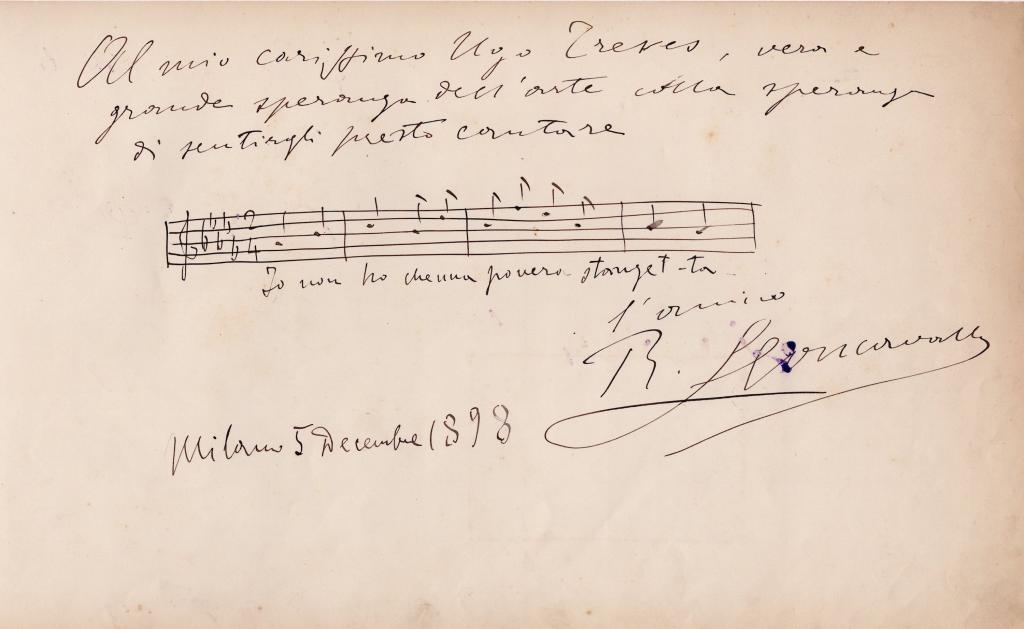 Al mio carissimo Ugo Treves, vera e
grande speranza dell'arte colla speranza
di sentirgli presto cantare
2
4
Io non ho che una povera stanzet-ta
l'amico
R. Leoncavallo
Milano 5 Decembre 1898